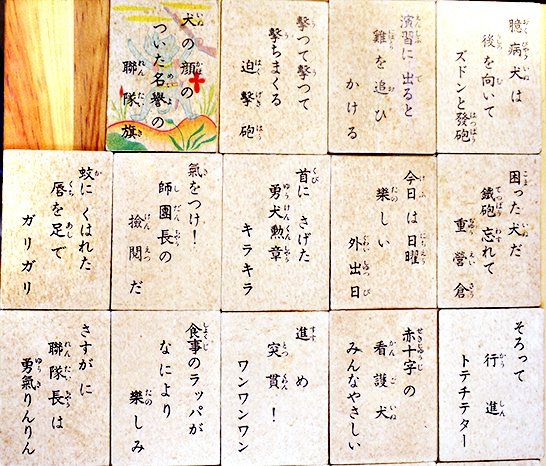 臆病犬は
後を向いて
ズドンと發砲
演習に出ると
雞を追ひ
かける
撃つて撃つて
撃ちまくる
迫撃砲
犬の顔の
ついた名譽の
聯隊旗
困った犬だ
鐵砲忘れて
重營倉
今日は日曜
樂しい
外出日
首にさげた
勇犬勲章
キラキラ
氣をつけ！
師團長の
檢閲だ
蚊にくはれた
唇を足で
ガリガリ
そろって
行進
トテチテター
赤十字の
看護犬
みんなやさしい
進め
突貫！
ワンワンワン
食事のラッパが
なにより
樂しみ
さすがに
聯隊長は
勇氣りんりん